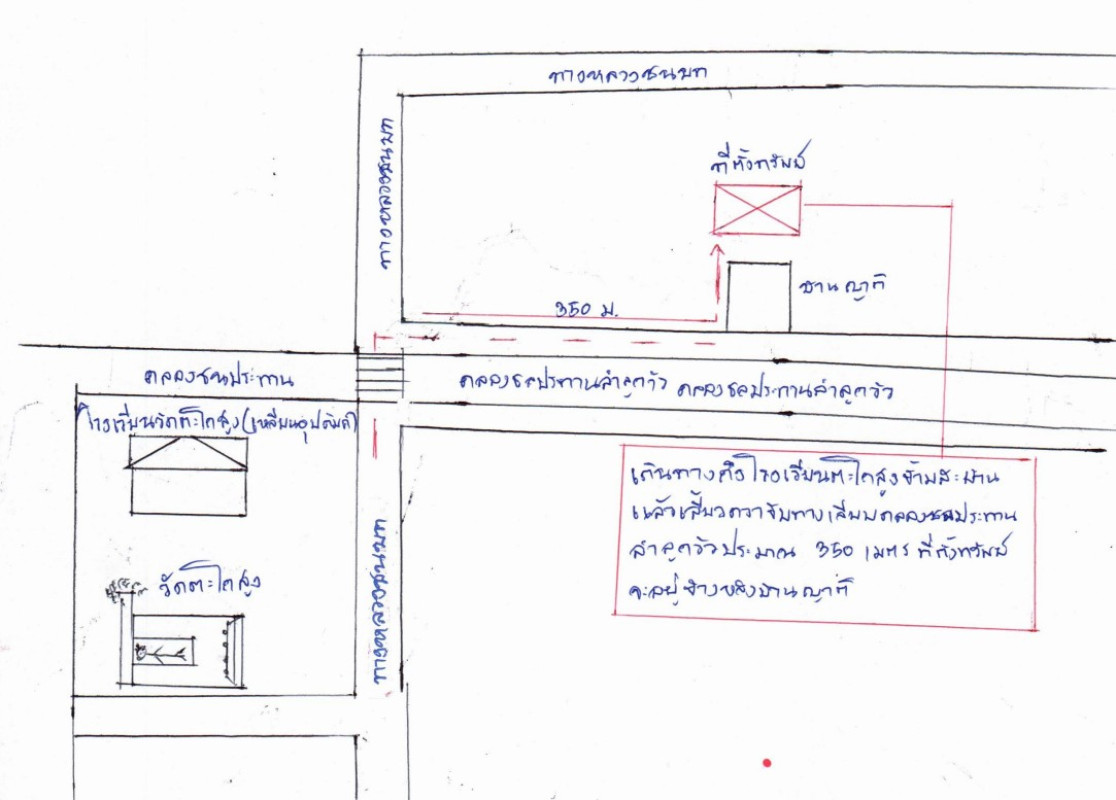 ทางหลวงชนบท
ทางหลวงชนบท
ที่ตั้งทรัพย์
บ้านญาติ
350 ม.
คลองชลประทาน
คลองชลประทานลำลูกวัว คลองชลประทานลำลูกวัว
โรงเรียนวัดตะโกสูง(เหลี่ยมอุปถัมภ์)
เดินทางถึงโรงเรียนตะโกสูงข้ามสะพาน
แล้วเลี้ยวขวาขับทางเลียบคลองชลประทาน
ลำลูกวัวประมาณ 350 เมตร ที่ตั้งทรัพย์
จะอยู่ข้างหลังบ้านญาติ
วัดตะโกสูง
ทางหลวงชนบท